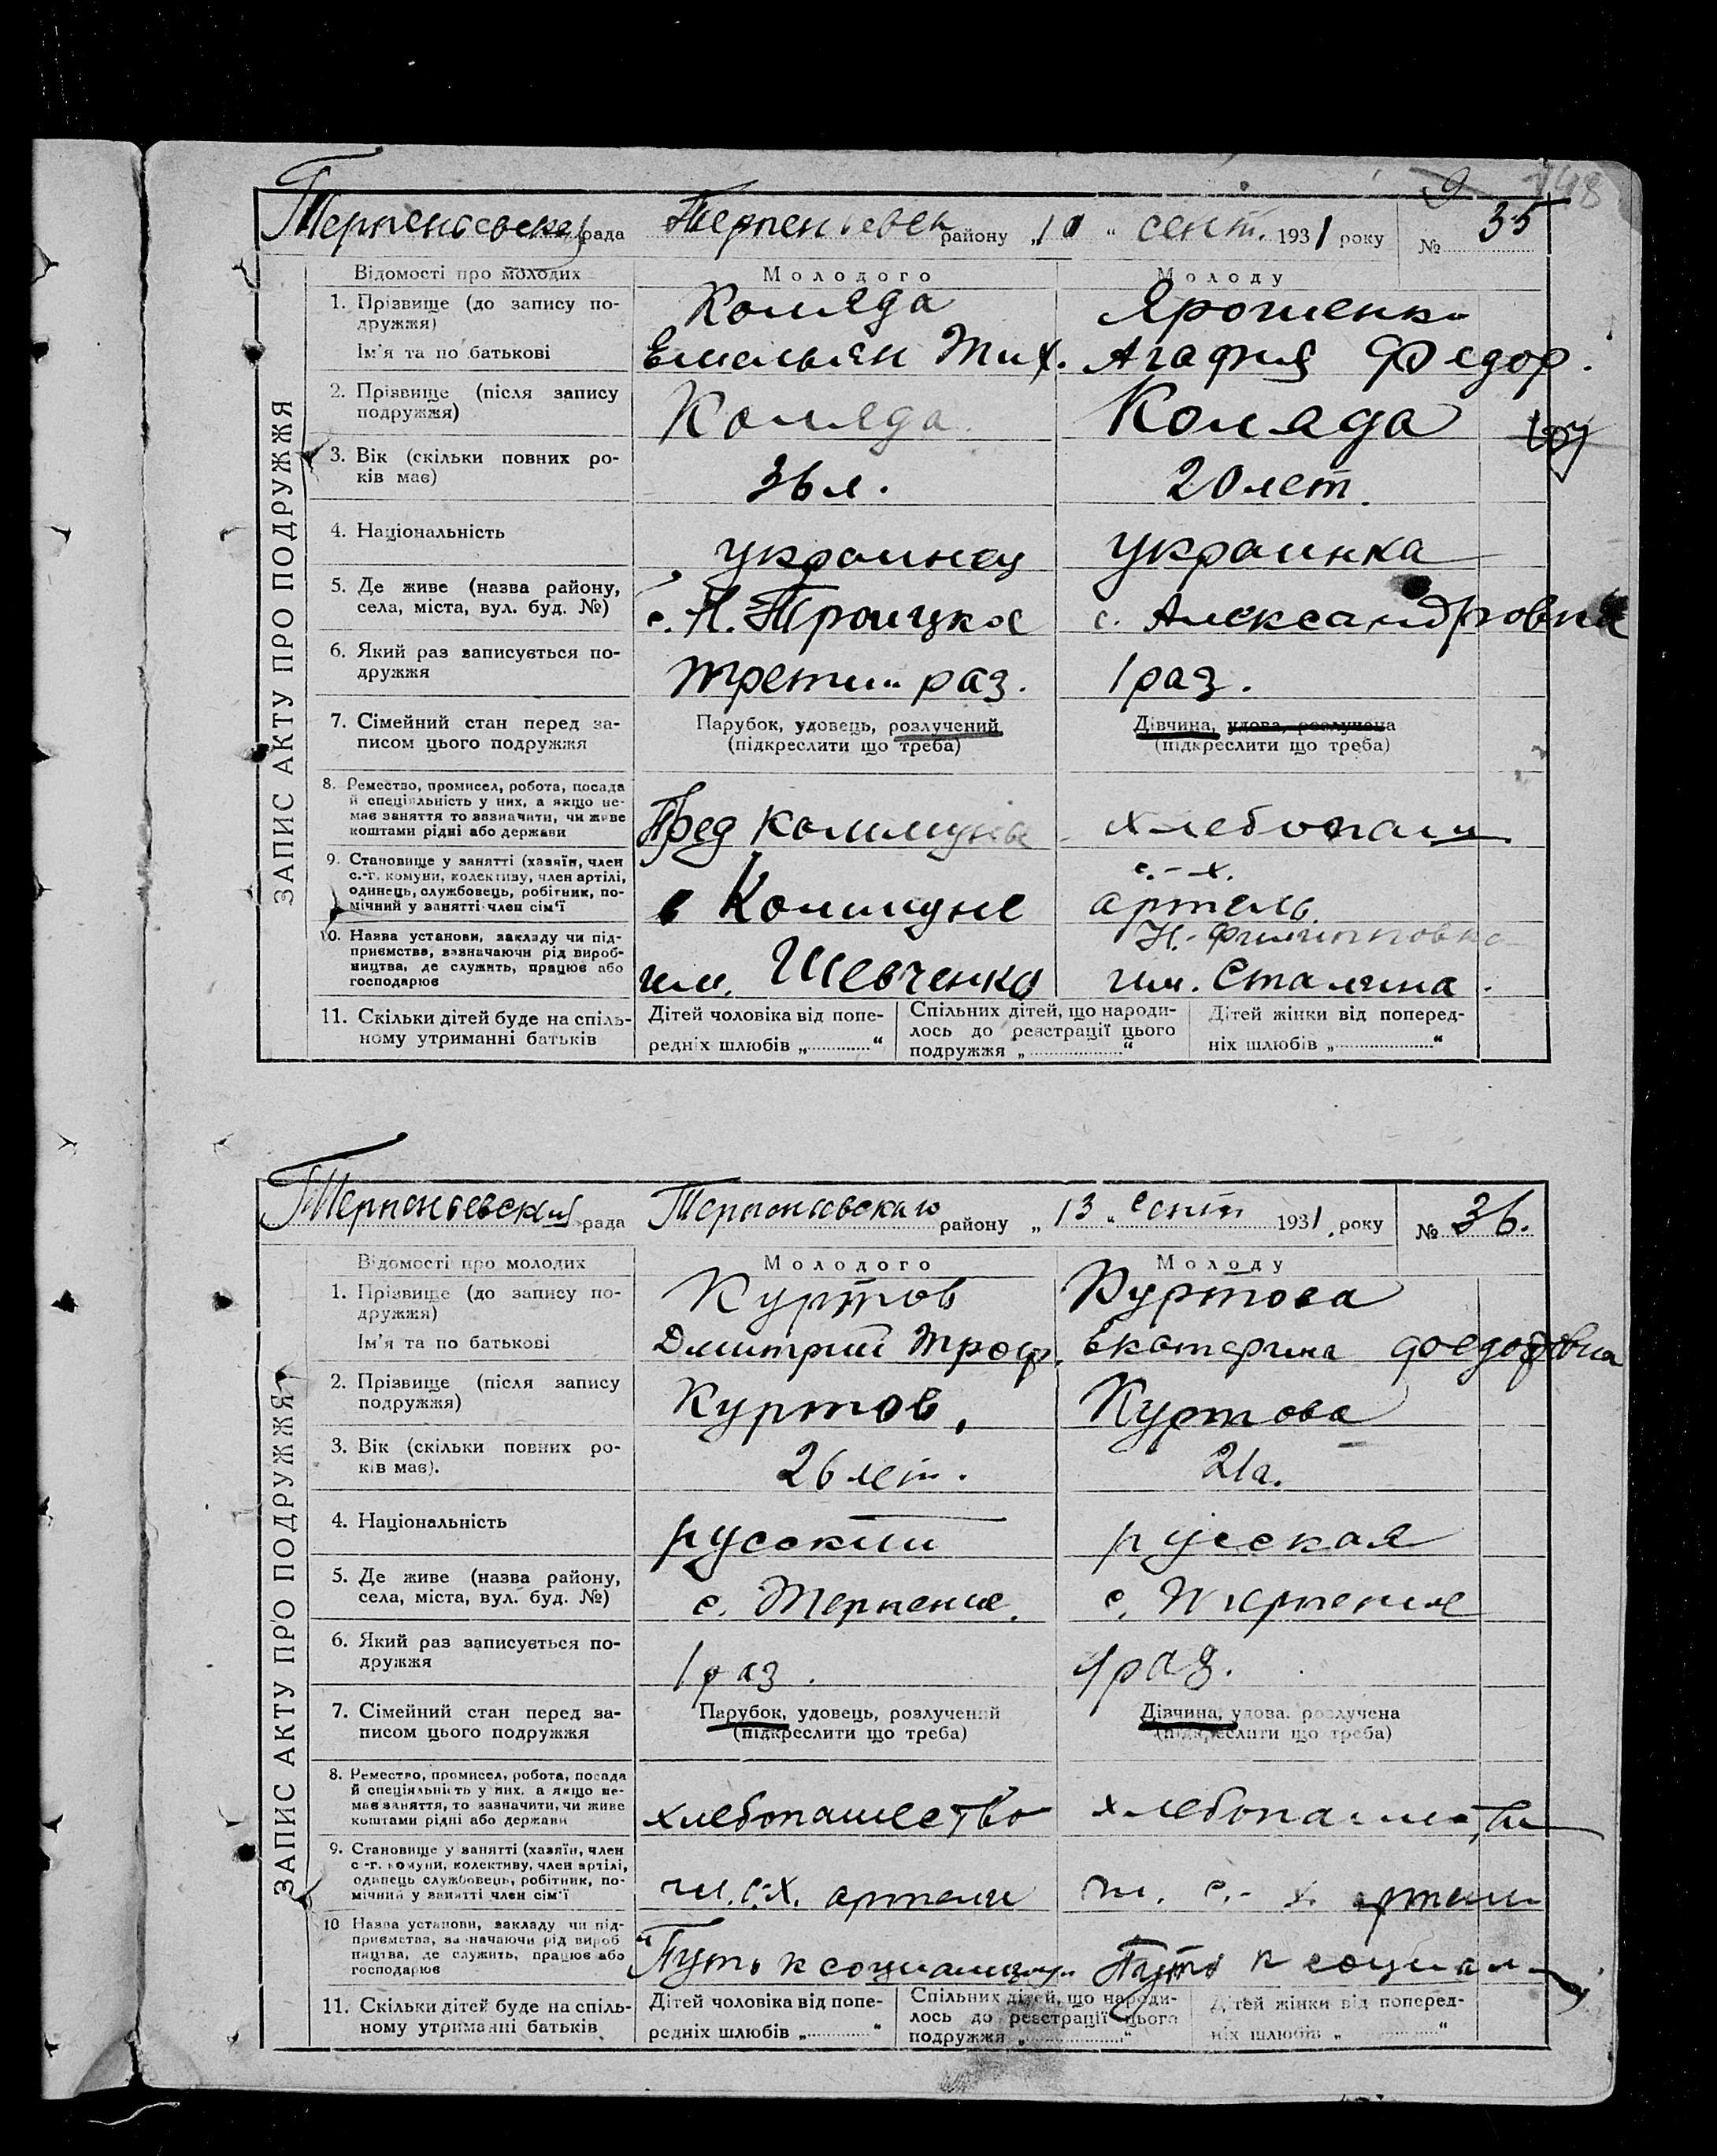 148
Терпеньевская рада Терпеньевск району „10“ сент. 1931 року № 35
ЗАПИС АКТУ ПРО ПОДРУЖЖЯ
Відомості про молодих Молодого Молоду
1. Прізвище (до запису по- Коляда Ярошенко
дружжя)
Ім'я та по батькові Емельян Тих. Агафия Федор.
2. Прізвище (після запису Коляда Коляда
подружжя)
3. Вік (скільки повних ро- 36 л. 20 лет.
ків має)
4. Національність украинец украинка
5. Де живе (назва району, с. Н. Троицкое с. Александровка
села, міста, вул. буд. №)
6. Який раз записується по- третий раз. 1 раз.
дружжя
7. Сімейний стан перед за- Парубок, удовець, розлучений Дівчина, удова, розлучена
писом цього подружжя (підкреслити що треба) (підкреслити що треба)
8. Ремество, промисел, робота, посада
й спеціяльність у них, а якщо не-
має заняття то зазначити, чи живе Пред Коммуны хлебопаш
коштами рідні або держави
9. Становище у занятті (хазяїн, член с.-х.
с.-г. комуни, колективу, член артілі,
одинець, службовець, робітник, по- в Коммуне артель.
мічний у занятті член сім'ї
10. Назва установи, закладу чи під- Н.-Филипповка
приємства, зазначаючи рід вироб-
ництва, де служить, працює або им. Шевченко им. Сталина.
господарює
11. Скільки дітей буде на спіль- Дітей чоловіка від попе- Спільних дітей, що народи- Дітей жінки від поперед-
ному утриманні батьків редніх шлюбів „ “ лось до реєстрації цього ніх шлюбів „ “
подружжя „ “
Терпеньевский рада Терпеньевского району „13„ сент 1931 року № 36.
ЗАПИС АКТУ ПРО ПОДРУЖЖЯ
Відомості про молодих Молодого Молоду
1. Прізвище (до запису по- Куртов Куртова
дружжя)
Ім'я та по батькові Дмитрий Троф. Екатерина Федоровна
2. Прізвище (після запису Куртов, Куртова
подружжя)
3. Вік (скільки повних ро- 26 лет. 21 г.
ків має).
4. Національність русский русская
5. Де живе (назва району, с. Терпение. с. Терпение
села, міста, вул. буд. №)
6. Який раз записується по- 1 раз. 1 раз.
дружжя
7. Сімейний стан перед за- Парубок, удовець, розлучений Дівчина, удова. розлучена
писом цього подружжя (підкреслити що треба) (підкреслити що треба)
8. Ремество, промисел, робота, посада
й спеціяльність у них, а якщо не-
має заняття, то зазначити, чи живе хлебопашество хлебопашество
коштами рідні або держави
9. Становище у занятті (хазяїн, член
с.-г. комуни, колективу, член артілі,
одинець службовець, робітник, по- чл. с.-х. артели чл. с.-х. артели
мічний у занятті член сім'ї
10 Назва установи, закладу чи під-
приємства, зазначаючи рід вироб
ництва, де служить, працює або „Путь к социализму“ Путь к социал
господарює
11. Скільки дітей буде на спіль- Дітей чоловіка від попе- Спільних дітей, що народи- Дітей жінки від поперед-
ному утриманні батьків редніх шлюбів „ “ лось до реєстрації цього ніх шлюбів „ “
подружжя „ “